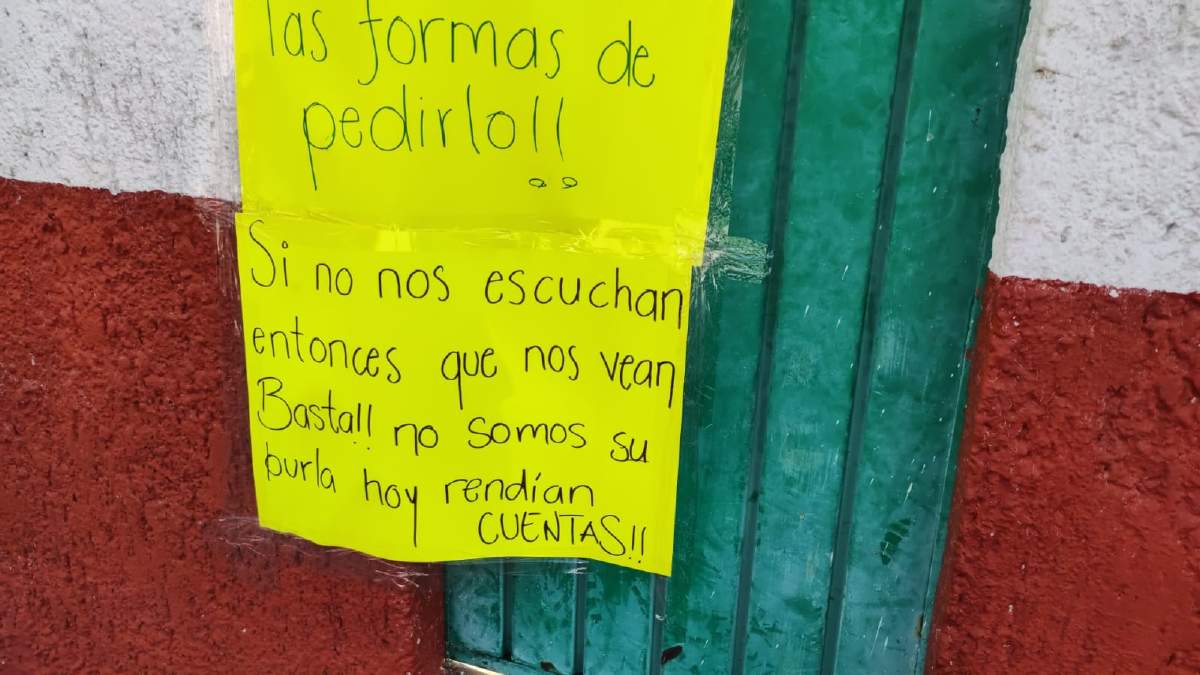 las formas de
pedirlo!!
Si no nos escuchan
entonces que nos vean
Basta!! no somos su
burla hoy rendían
CUENTAS!!